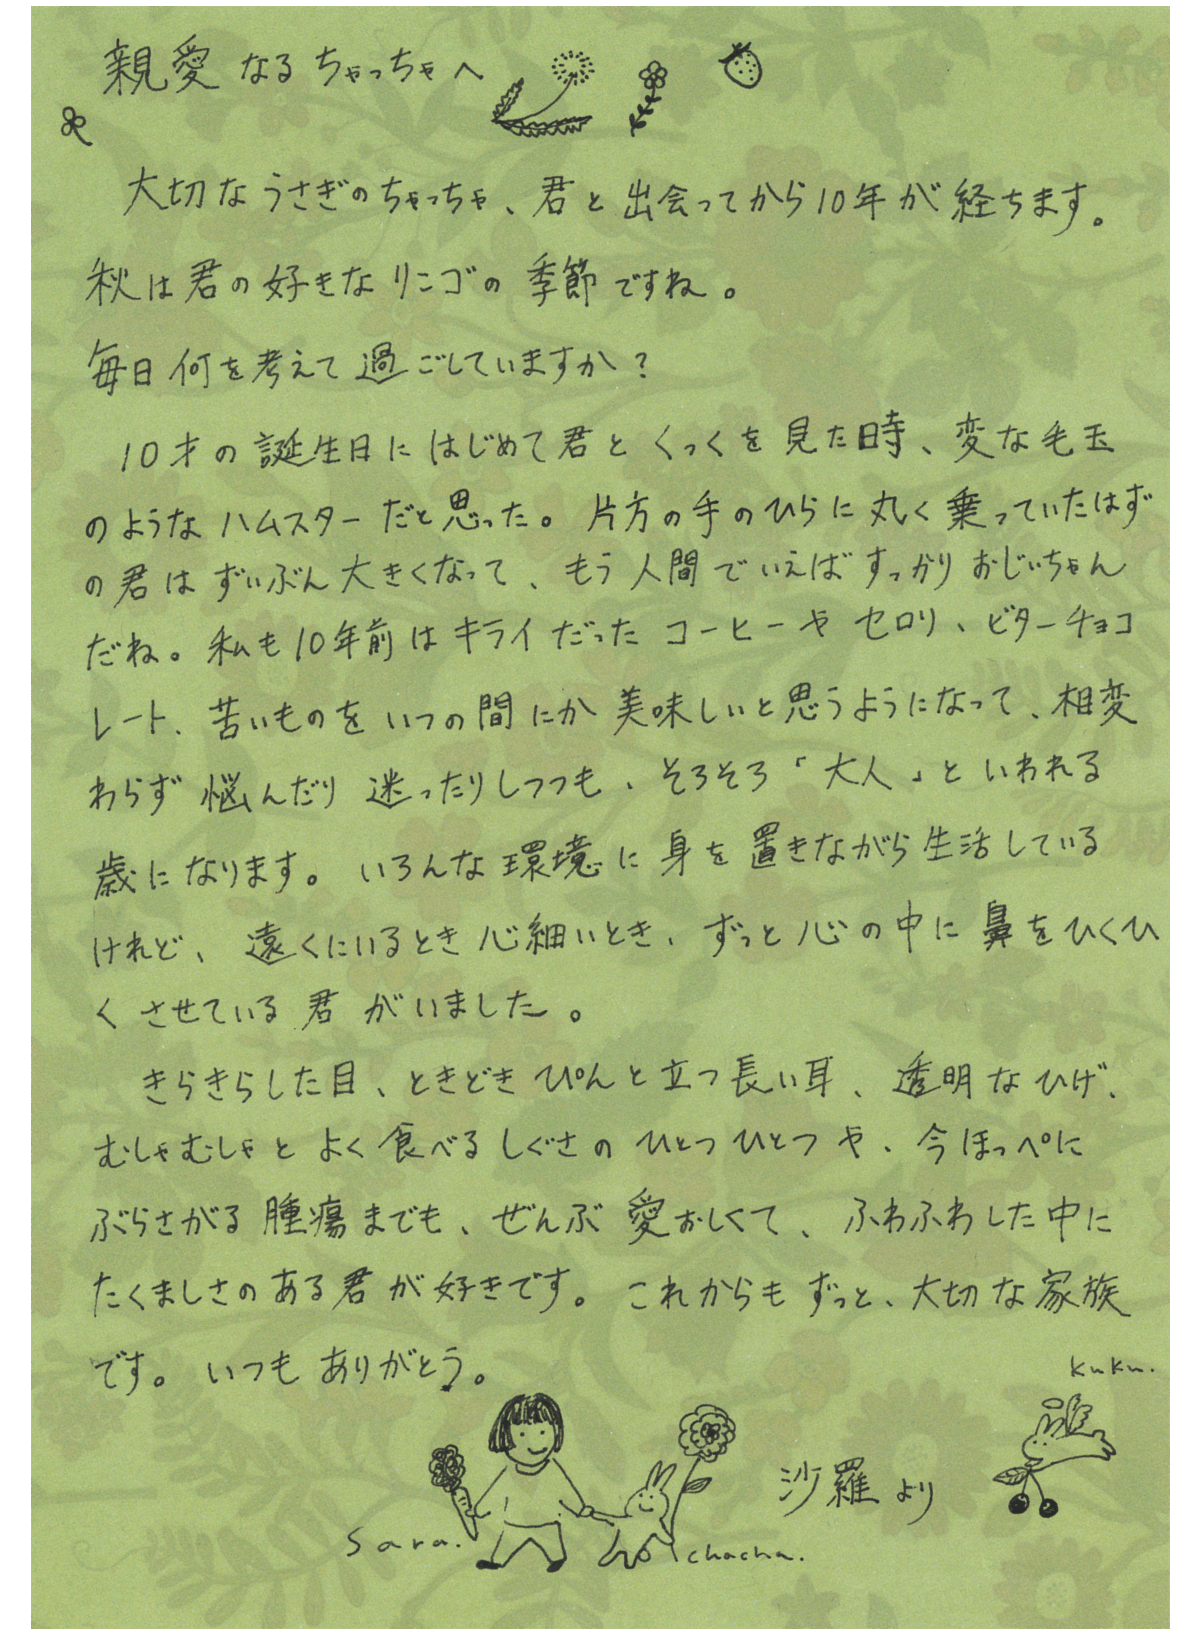 親愛なるちゃっちゃへ
大切なうさぎのちゃっちゃ、君と出会ってから10年が経ちます。
秋は君の好きなリンゴの季節ですね。
毎日何を考えて過ごしていますか?
10才の誕生日にはじめて君とくっくを見た時、変な毛玉
のようなハムスターだと思った。片方の手のひらに丸く乗っていたはず
の君はずいぶん大きくなって、もう人間でいえばすっかりおじいちゃん
だね。私も10年前はキライだったコーヒーやセロリ、ビターチョコ
レート、苦いものをいつの間にか美味しいと思うようになって、相変
わらず悩んだり迷ったりしつつも、そろそろ「大人」といわれる
歳になります。いろんな環境に身を置きながら生活している
けれど、遠くにいるとき心細いとき、ずっと心の中に鼻をひくひ
くさせている君がいました。
きらきらした目、ときどきぴんと立つ長い耳、透明なひげ、
むしゃむしゃとよく食べるしぐさのひとつひとつや、今ほっぺに
ぶらさがる腫瘍までも、ぜんぶ愛おしくて、ふわふわした中に
たくましさのある君が好きです。これからもずっと、大切な家族
です。いつもありがとう。
kuku.
沙羅より
sara.
chacha.